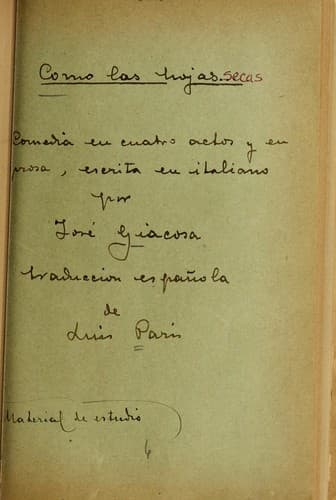 Como las hojas secas
Comedia en cuatro actos y en
prosa, escrita en italiano
por
José Giacosa
traduccion española
de
Luis Paris
Material de estudio